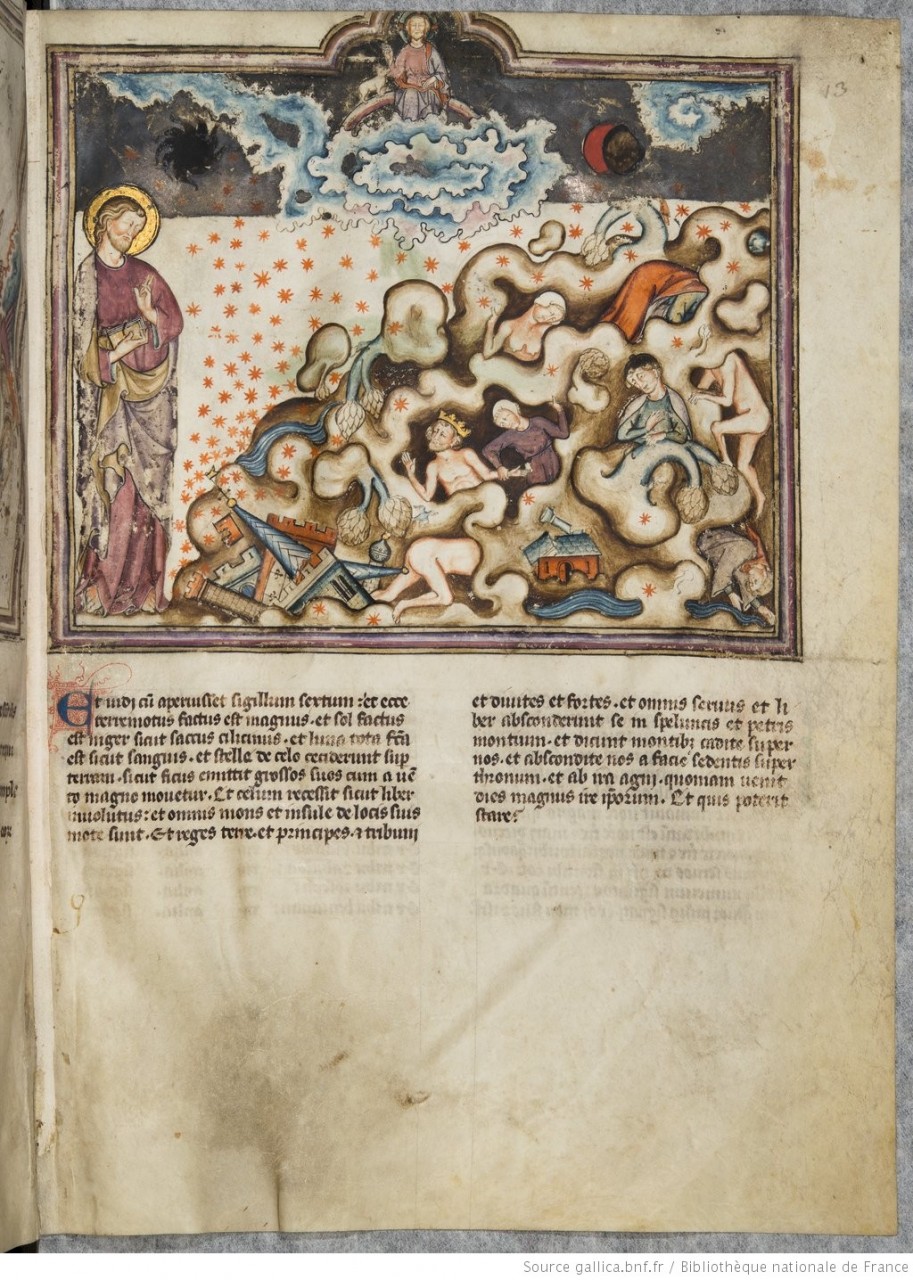 13
Et vidi cū aperuisset sigillum sextum : et ecce
terremotus factus est magnus . et sol factus
est niger sicut saccus cilicinus . et luna tota fc̄a
est sicut sanguis . et stelle de celo ceciderunt sup
terram . sicut ficus emittit grossos suos cum a uē
to magno mouetur . Et celum recessit sicut liber
inuolutus : et omnis mons et insule de locis suis
mote sunt . Et reges terre . et principes . ⁊ tribuni
et diuites et fortes . et omnis seruus et li
ber absconderunt se in speluncis et petris
montium . et dicunt montibꝫ cadite super
nos . et abscondite nos a facie sedentis super
thronum . et ab ira agni . quoniam uenit
dies magnus ire ip̄orum . Et quis poterit
stare ?
Source gallica.bnf.fr / Bibliothèque nationale de France